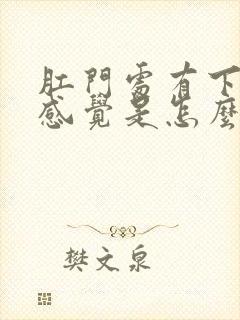 肛門處有下
感覺是怎麼
樊文泉